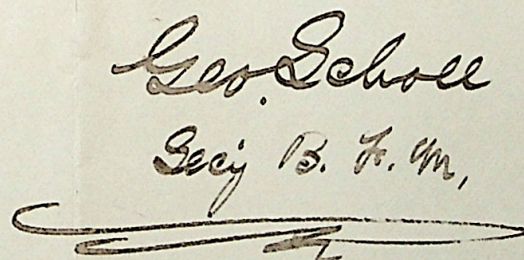 Geo. Scholl
Sec'y B. F. M.,